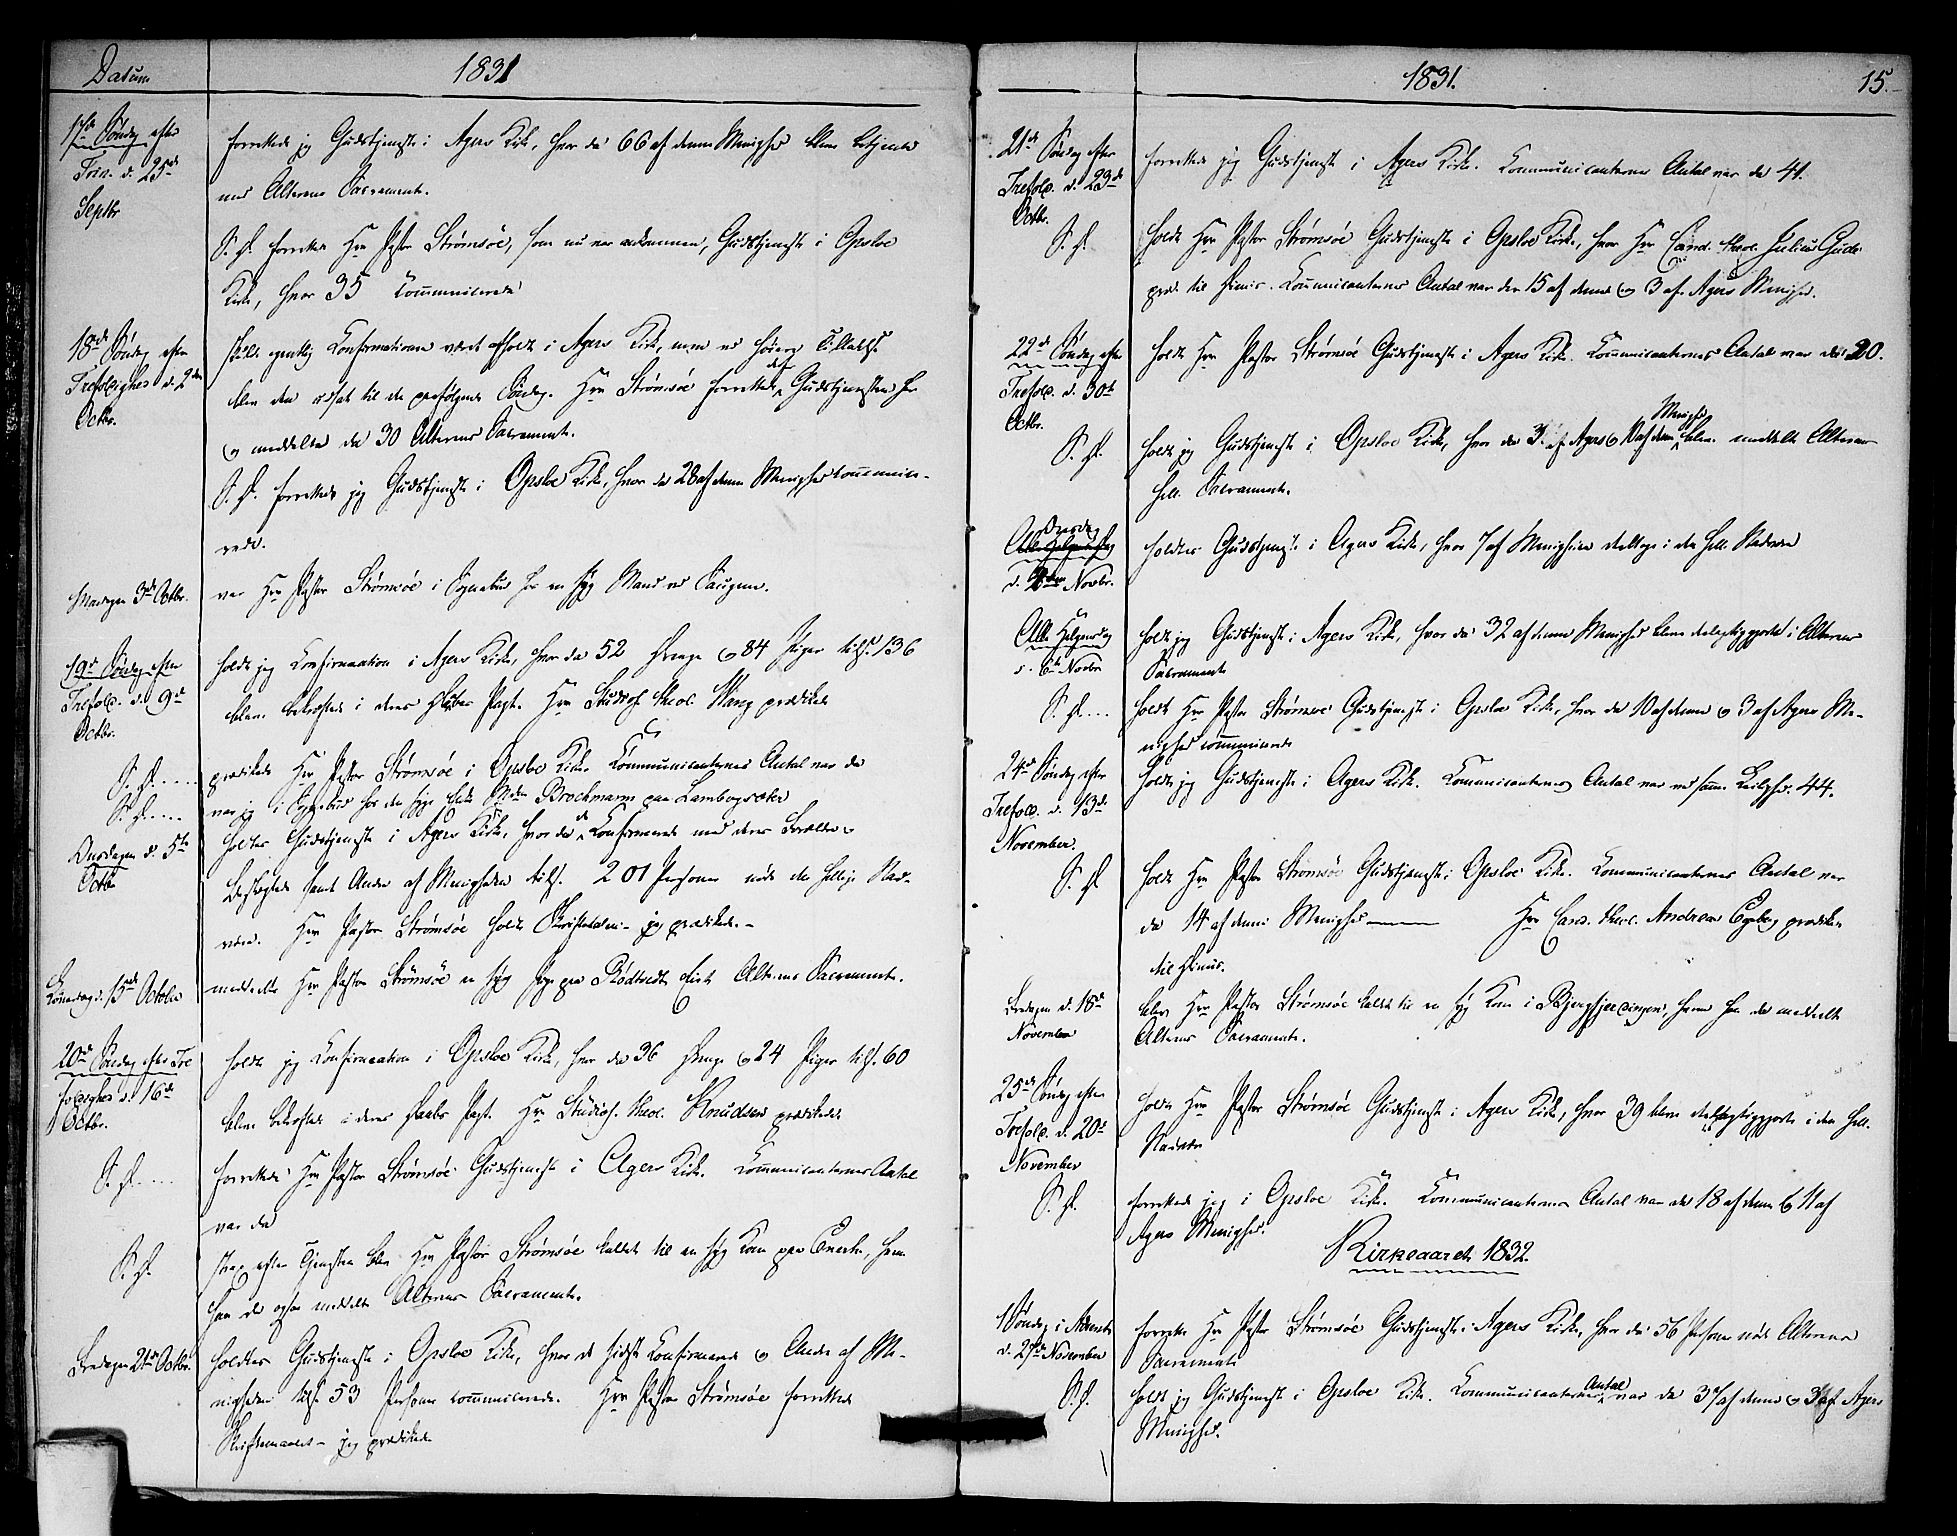 Datum
1831
17de Søndag efter
Trin. d. 25de
Septbr
forrettede jeg Gudstjeneste i Agers Kirke, hvor da 66 af denne Menighed bleve betjente
med Alterens Sacramente.
S. D. forrettede Hr Pastor Strømsöe, som nu var ankommen, Gudstjeneste i Opsloe
Kirke, hvor 35 Communicerede
18de Søndag efter
Trefoldighed d. 2den
Octbr.
skulde egentlig Confirmationen været afholdt i Agers Kirke, men ved höiere Tilladelse
blev den udsat til den paafølgende Søndag. Hr Strømsöe forrettede Gudstjenesten her
og meddelte da 30 Alterens Sacramente.
S. D. forrettede jeg Gudstjeneste i Opsloe Kirke, hvor da 28 af denne Menighed communice-
rede.
Mandagen 3de Octbr.
var Hr Pastor Strømsöe i Sognebud hos en syg Mand ved Saugene.
19de Søndag efter
Trefold. d. 9de
Octbr.
holdt jeg Confirmation i Agers Kirke, hvor da 52 Drenge og 84 Piger tils. 136
bleve bekræftede i deres Daabes Pagt. Hr Studios. theol. Wang prædikede
S. D. ....
prædikede Hr Pastor Strømsöe i Opsloe Kirke. Communicanternes Antal var da
S. D. ....
var jeg i Sognebud hos den syge Madm Brochmann paa Lambogsæter
Onsdagen d. 5te
Octbr
holdtes Gudstjeneste i Agers Kirke, hvor da de Confirmerede med deres Forældre og
Beslægtede samt Andre af Menigheden tils. 201 Personer nøde den hellige Nad-
vere. Hr Pastor Strømsöe holdt Skriftetalen - jeg prædikede. -
Løverdag d. 15de October
meddeelte Hr Pastor Strømsöe en syg Pige paa Rødtvedt Eie Alterens Sacramente.
20de Søndag efter Tre
foldighed d. 16de
Octbr.
holdt jeg Confirmation i Opsloe Kirke, hvor da 36 Drenge og 24 Piger tils. 60
bleve bekræftede i deres Daabs Pagt. Hr Studios. theol. Knudsen prædikede
S. D. ....
forrettede Hr Pastor Strømsöe Gudstjeneste i Agers Kirke. Communicanternes Antal
var da
S. D.
strax efter Tjenesten blev Hr Pastor Strømsöe kaldet til en syg Kone paa, hvem
han da ogsaa meddeelte Alterens Sacramente.
Fredagen 21de Octbr.
holdtes Gudstjeneste i Opsloe Kirke, hvor de sidste Confirmerede og Andre af Me-
nigheden tils. 53 Personer communicerede. Hr Pastor Strømsöe forrettede
Skriftemaalet - jeg prædikede
1831.
15.
21de Søndag efter
Trefold. d. 23de
Octbr.
forrettede jeg Gudstjeneste i Agers Kirke. Communicanternes Antal var da 41.
S. D.
holdt Hr Pastor Strømsöe Gudstjeneste i Opsloe Kirke, hvor Hr Cand. theol. Julius Gude
præd. til Dimis. Communicanternes Antal var der 15 af denne og 3 af Agers Menighed.
22de Søndag efter
Trefold. d. 30te
Octbr.
holdt Hr Pastor Strømsöe Gudstjeneste i Agers Kirke. Communicanternes Antal var da 20.
S. D.
holdt jeg Gudstjeneste i Opsloe Kirke, hvor da 3 af Agers og 10 af denne Menighed bleve meddelte Alterens
hell. Sacramente.
Onsdag
d. 2den Novbr.
holdtes Gudstjeneste i Agers Kirke, hvor 7 af Menigheden deeltoge i den hell. Nadvere
Alle Helgensdag
d. 6te Novbr
holdt jeg Gudstjeneste i Agers Kirke, hvor da 32 af denne Menighed bleve deelagtiggjorte i Alterens
Sacramente
S. D. ...
holdt Hr Pastor Strømsoe Gudstjeneste i Opsloe Kirke, hvor da 10 af denne og 3 af Agers Me-
nighed communicerede
24de Søndag efter
Trefold. d. 13de
November.
holdt jeg Gudstjeneste i Agers Kirke. Communicanternes Antal var ved samme Leilighed 44.
S. D.
holdt Hr Pastor Strømsöe Gudstjeneste i Opsloe Kirke. Communicanternes Antal var
da 14 af denne Menighed ——— Hr Cand. theol. Andreas Egeberg prædikede
til Dimis.
Fredagen d. 18de
November
blev Hr Pastor Strømsöe kaldet til en syg Kone i Bjergfjerdingen, hvem han da meddeelte
Alterens Sacramente.
25de Søndag efter
Trefold. d. 20de
November
holdt Hr Pastor Strømsöe Gudstjeneste i Agers Kirke, hvor 39 bleve deelagtiggjorte i den hell.
Nadvere
S. D.
forrettede jeg i Opsloe Kirke. Communicanternes Antal var da 18 af denne og 11 af
Agers Menighed.
Kirkeaaret 1832.
1 Søndag i Advent
d. 27de November
forrettede Hr Pastor Strømsöe Gudstjeneste i Agers Kirke, hvor da 56 Personer nøde Alterens
Sacramente
S. D.
holdt jeg Gudstjeneste i Opsloe Kirke. Communicanternes Antal var da 37 af denne og 3 af Agers
Menighed.